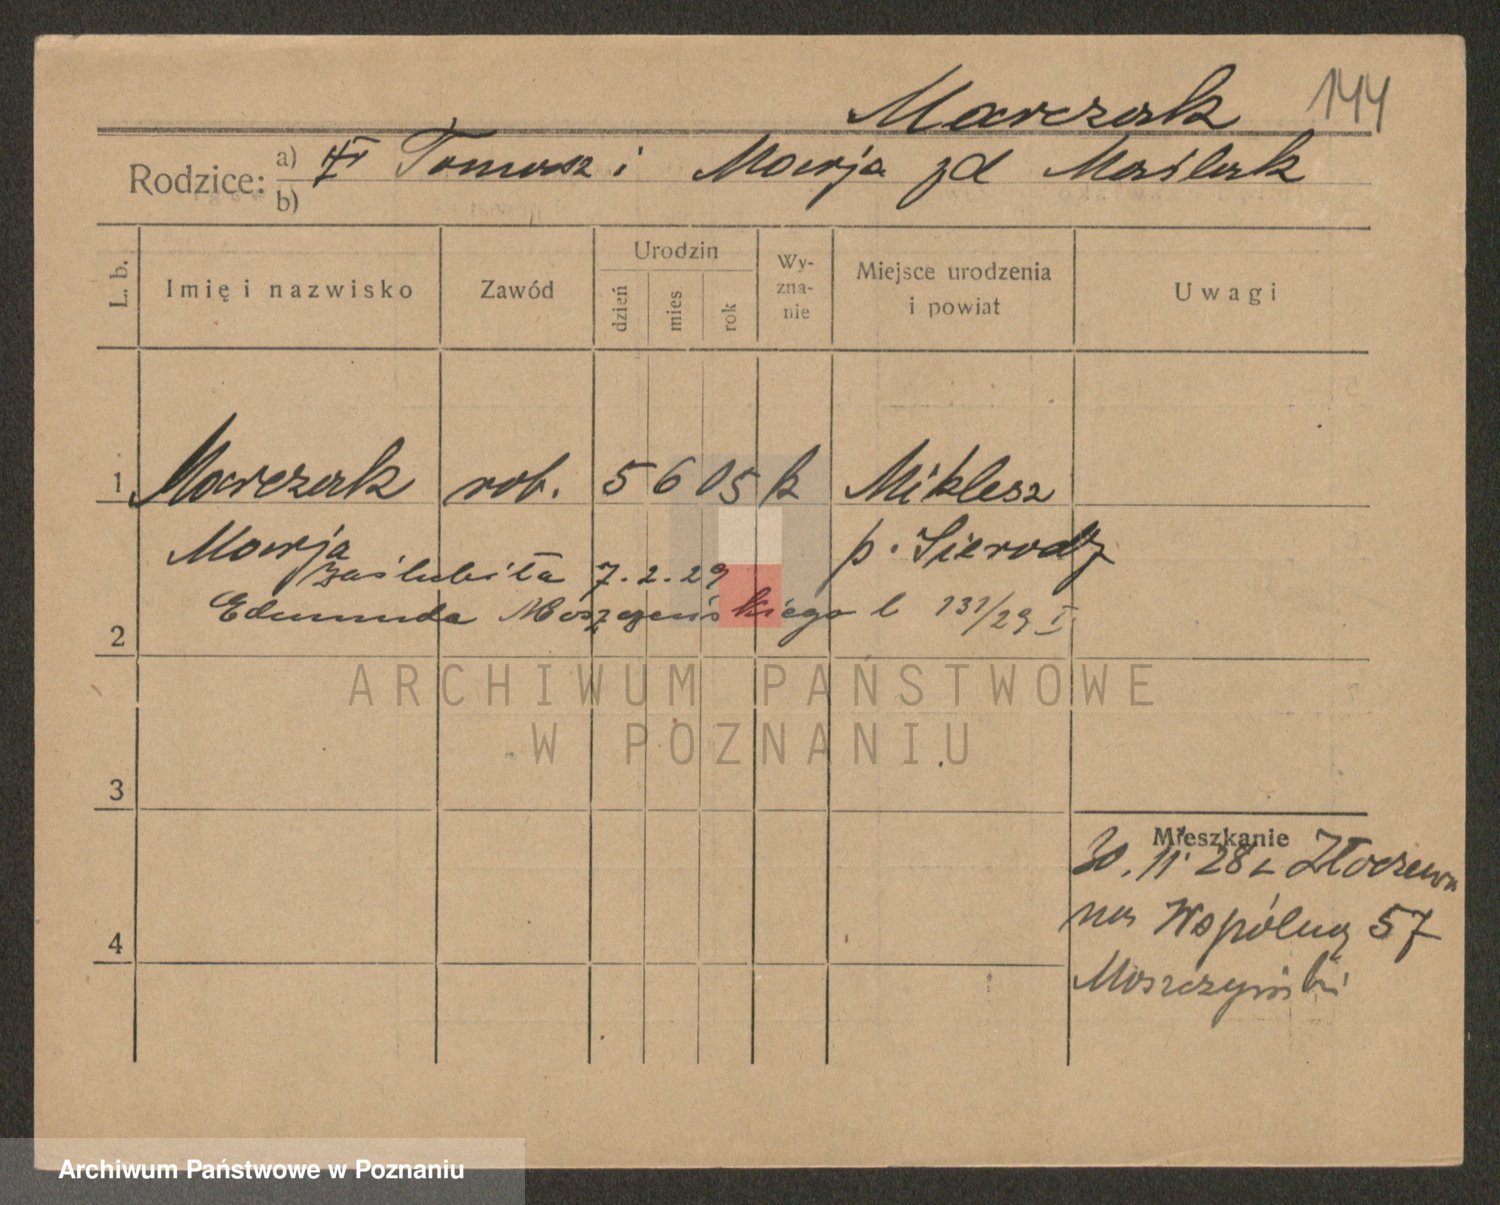 Marczak 144
Rodzice: a) Tomasz i Marja zd Maślak
b)
L. b. Imię i nazwisko Zawód Urodzin dzień mies rok Wy-zna-nie Miejsce urodzenia i powiat Uwagi
1 Marczak rob. 5 6 05 k Miklesz
Marja p. Sieradz
zaślubiła 7.2.29
Edmunda Moszczeńskiego l 131/29 I
2
ARCHIWUM PAŃSTWOWE
W POZNANIU
3
Mieszkanie
30.11.28 z Złoczewa
na Wspólną 57
4
Moszczyński
Archiwum Państwowe w Poznaniu